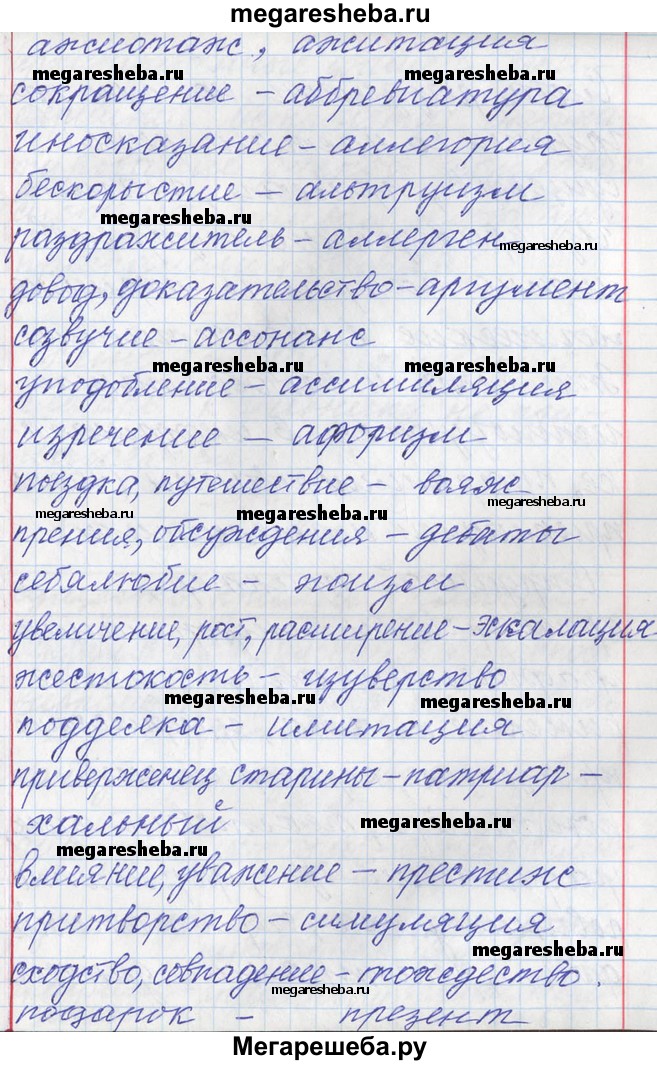 megaresheba.ru
ажиотаж, ажитация
megaresheba.ru megaresheba.ru
сокращение – аббревиатура
иносказание – аллегория
бескорыстие – альтруизм
megaresheba.ru
раздражитель – аллерген
megaresheba.ru
довод, доказательство – аргумент
созвучие – ассонанс
megaresheba.ru megaresheba.ru
уподобление – ассимиляция
изречение – афоризм
поездка, путешествие – вояж
megaresheba.ru megaresheba.ru megaresheba.ru
прения, обсуждения – дебаты
себялюбие – эгоизм
увеличение, рост, расширение – эскалация
жестокость – изуверство
megaresheba.ru megaresheba.ru
подделка – имитация
приверженец старины – патриар-
хальный
megaresheba.ru
megaresheba.ru
влияние, уважение – престиж
притворство – симуляция
megaresheba.ru
сходство, совпадение – тождество.
megaresheba.ru
подарок – презент
Мегарешеба.ру